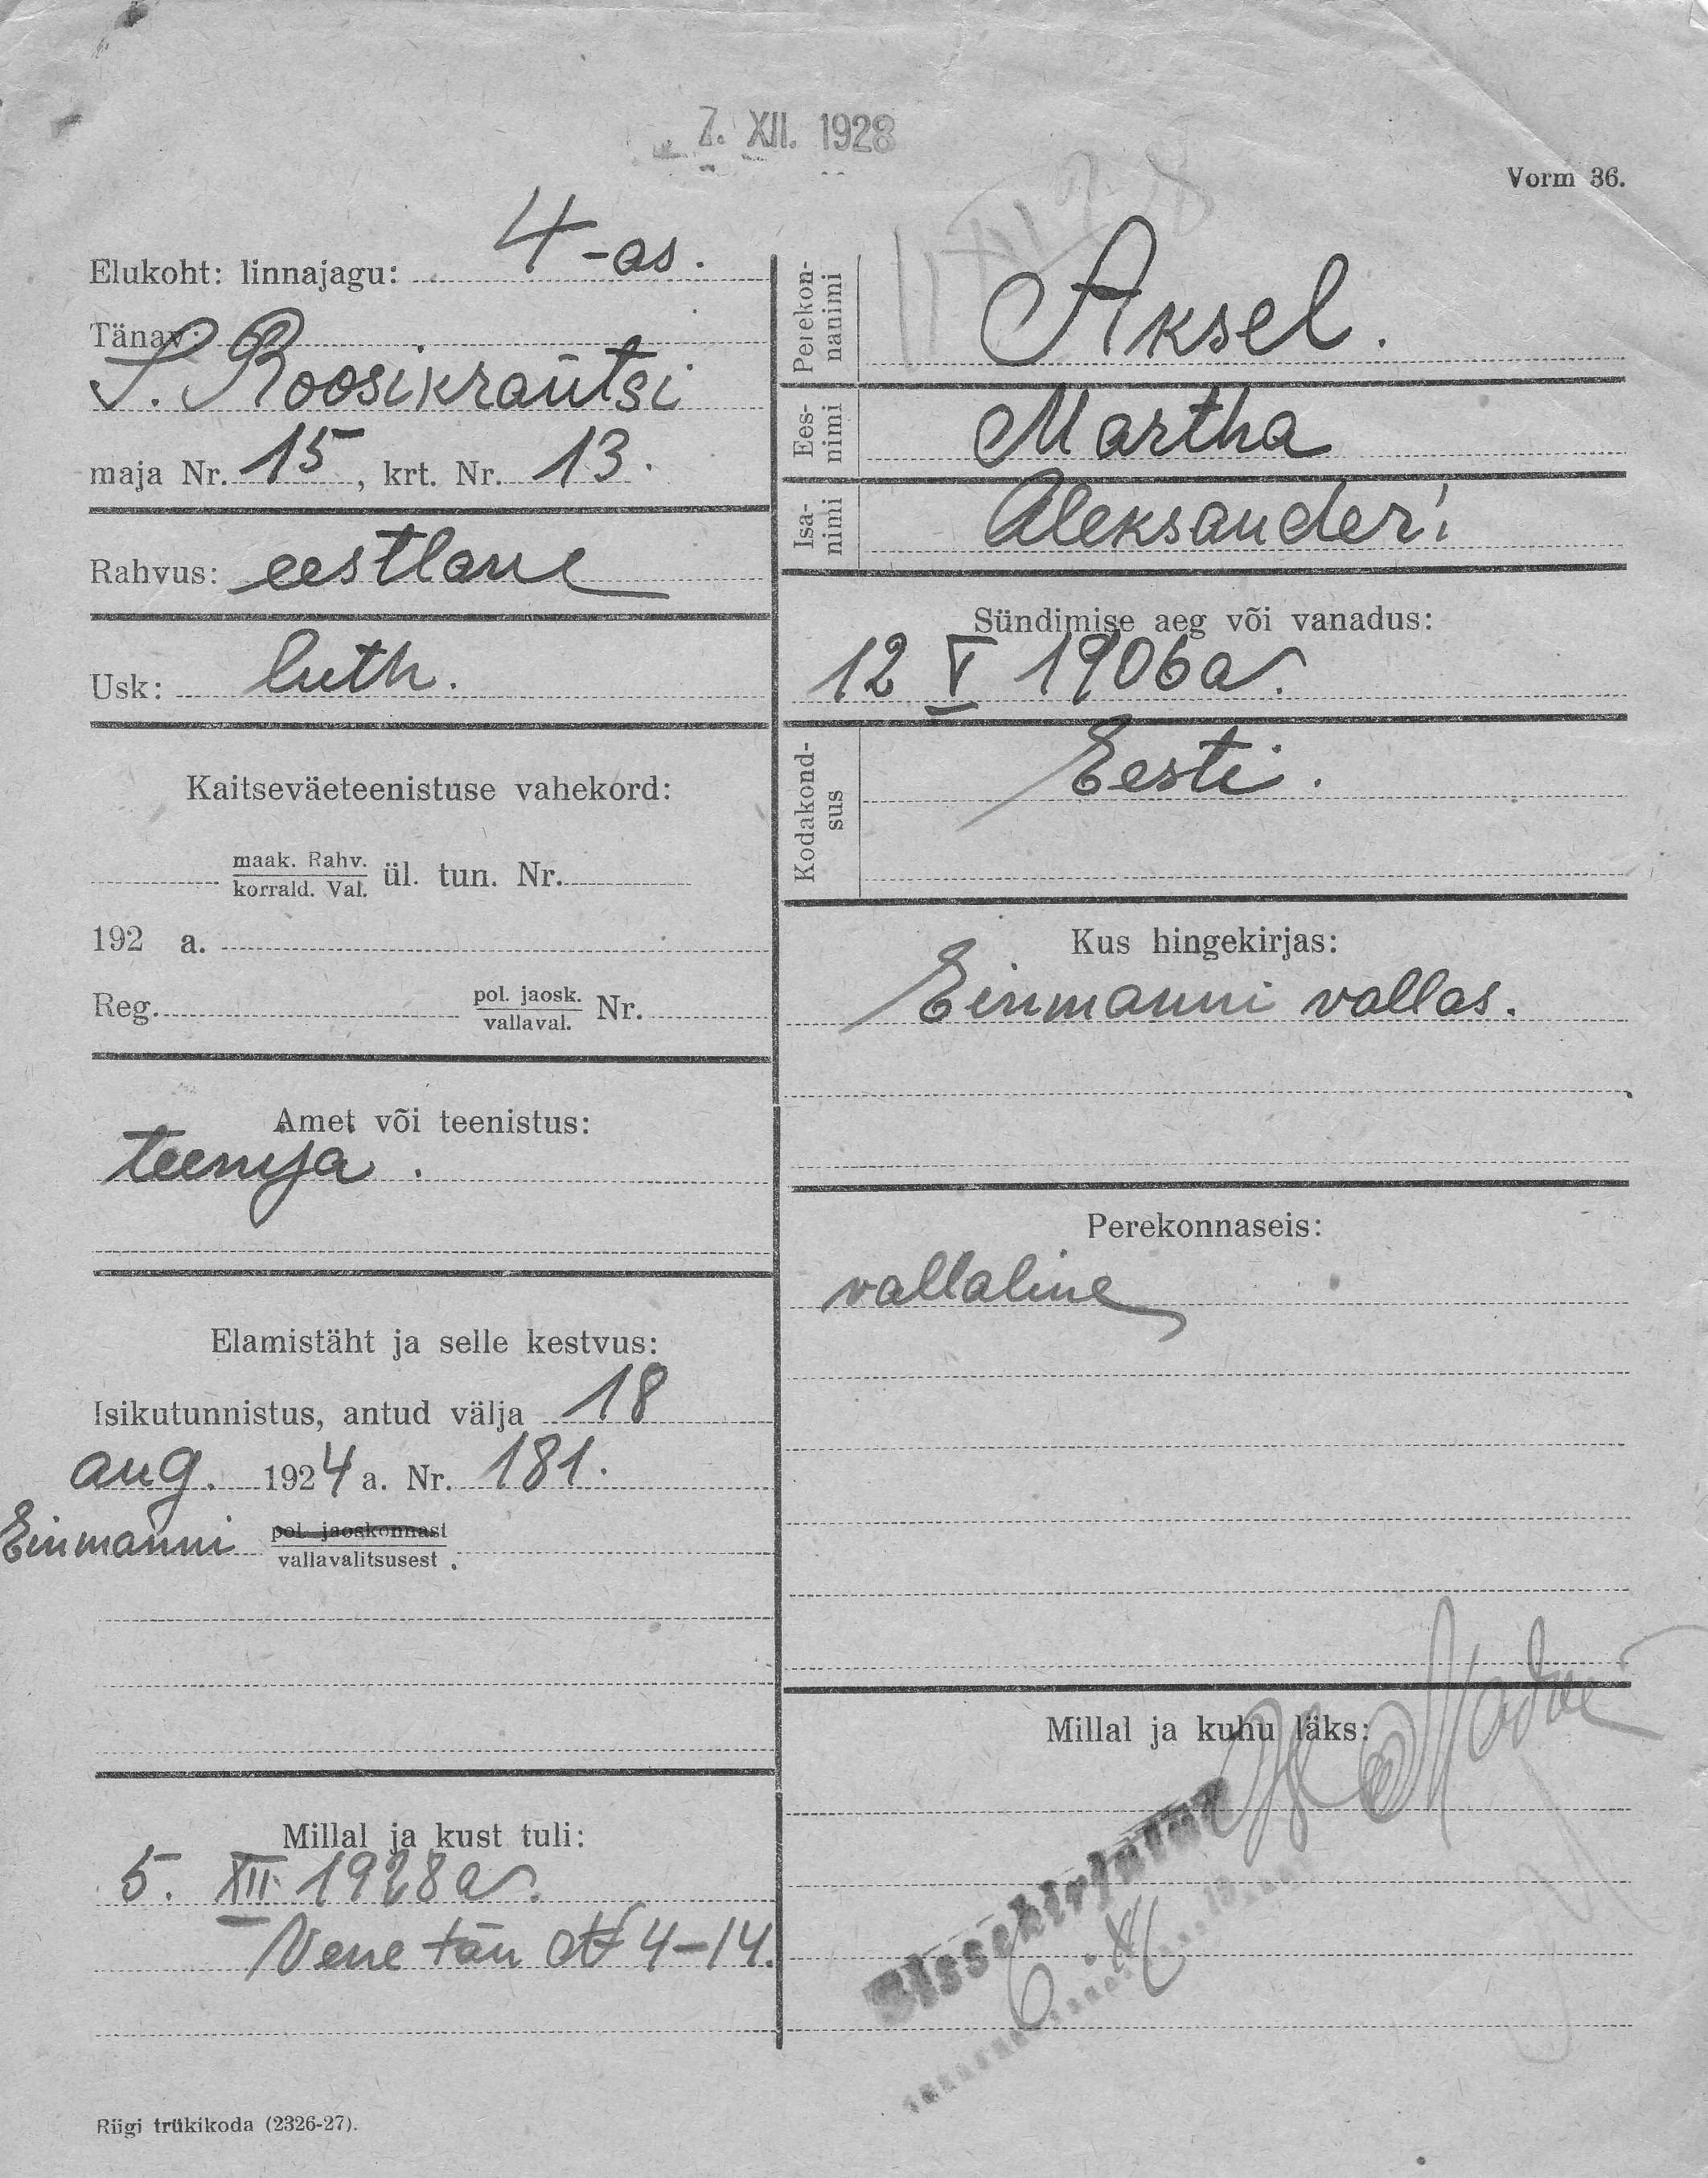 7. XII. 1928
Vorm 36.
Elukoht: linnajagu: 4-as.
Tänav:
S. Roosikrantsi
maja Nr. 15, krt. Nr. 13.
Rahvus: eestlane
Usk: luth.
Kaitseväeteenistuse vahekord:
maak. Rahv.
korrald. Val. ül. tun. Nr.
192 a.
Reg. pol. jaosk.
vallaval. Nr.
Amet või teenistus:
teenija.
Elamistäht ja selle kestvus:
Isikutunnistus, antud välja 18
aug. 1924 a. Nr. 181.
Einmanni pol. jaoskonnast
vallavalitsusest.
Millal ja kust tuli:
5. XII 1928 a.
Vene tän № 4-14.
Perekon-
nanimi
Aksel.
Ees-
nimi
Martha
Isa-
nimi
Aleksander'i
Sündimise aeg või vanadus:
12 V 1906 a.
Kodakond-
sus
Eesti.
Kus hingekirjas:
Einmanni vallas.
Perekonnaseis:
vallaline
Millal ja kuhu läks:
Sissekirjutud
6. XII
Riigi trükikoda (2326-27).